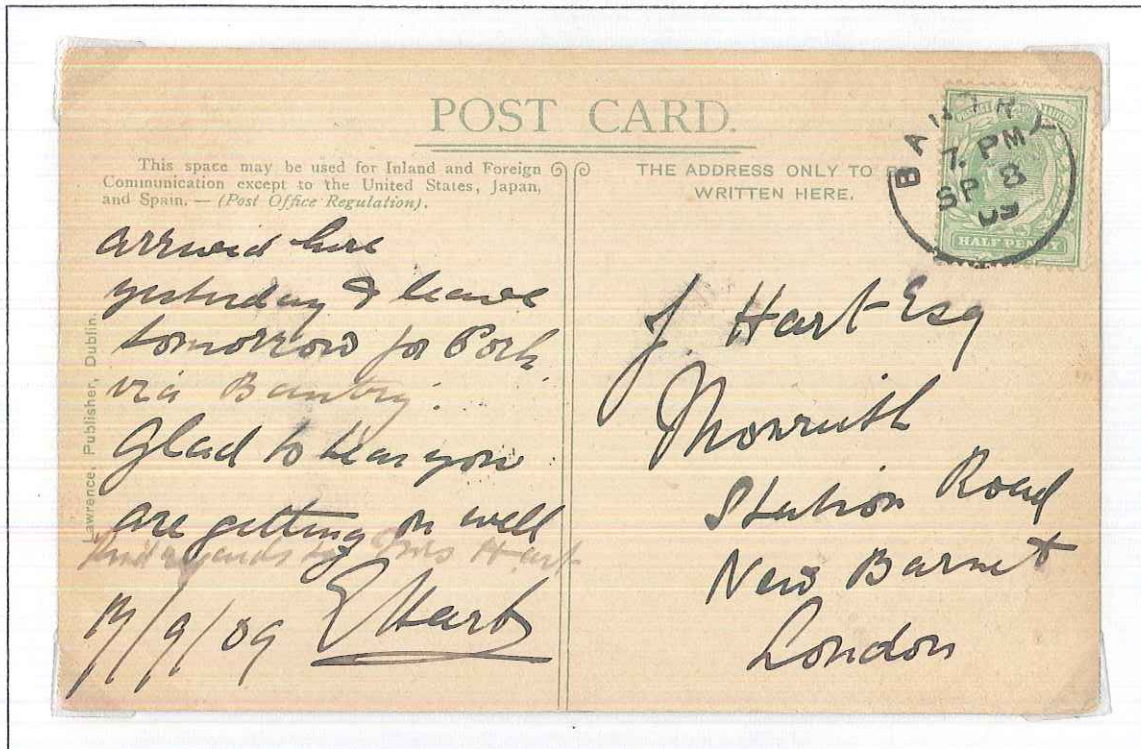 POST CARD.
This space may be used for Inland and Foreign
Communication except to the United States, Japan,
and Spain. — (Post Office Regulation).
THE ADDRESS ONLY TO BE
WRITTEN HERE.
BANTRY
7. PM
SP 8
09
HALF PENNY
Lawrence, Publisher, Dublin.
arrived here
yesterday & leave
tomorrow for Cork
via Bantry.
Glad to hear you
are getting on well
Kind regards to Mrs Hart
/9/09 E Hart
J. Hart Esq
Station Road
New Barnet
London